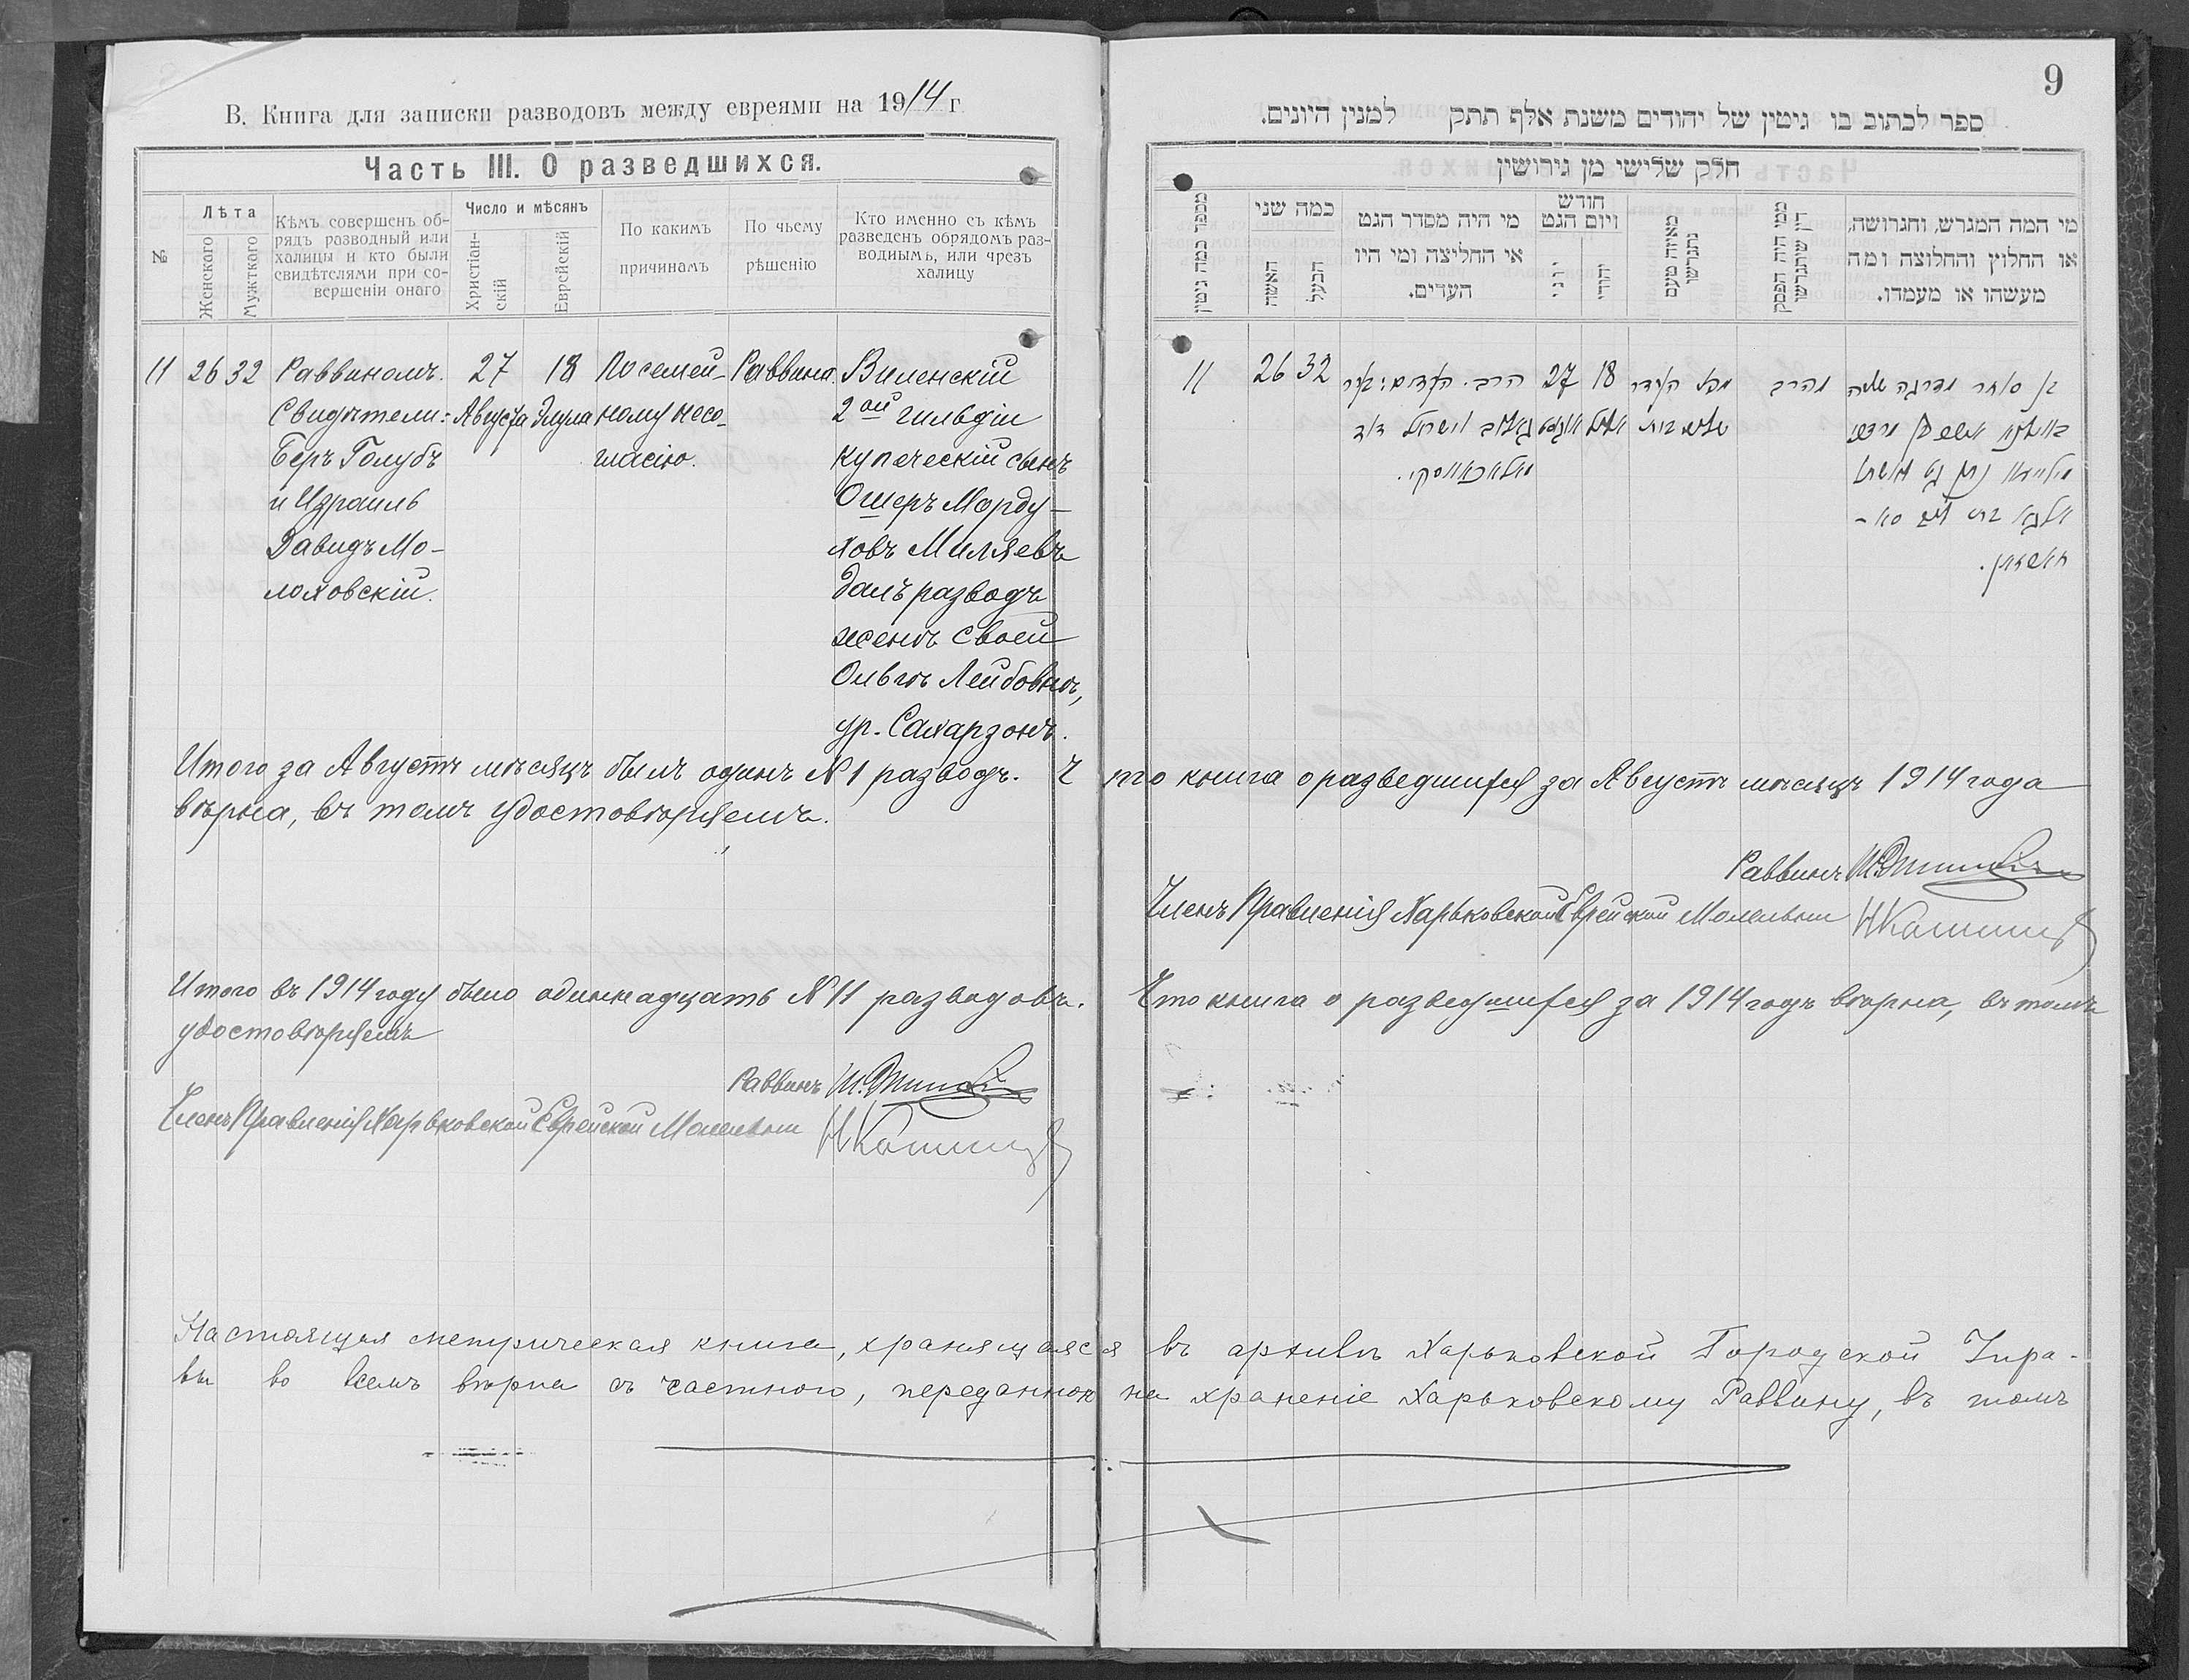 В. Книга для записки разводовъ между евреями на 1914 г
Часть III. О разведшихся.
№
Лѣта
Женскаго
Мужткаго
Кѣмъ совершенъ об-
рядъ разводный или
халицы и кто были
свидѣтелями при со-
вершеніи онаго
Число и мѣсянъ
Христіан-
скій
Еврейскій
По какимъ
причинамъ
По чьему
рѣшенію
Кто именно съ кѣмъ
разведенъ обрядомъ раз-
воднымъ, или чрезъ
халицу
11 26 32 Раввиномъ. 27 18 По семей- Раввина. Виленскій
Свидѣтели: Августа Элула ному несо- 2ой гильдіи
Беръ Голубъ гласію. купеческій сынъ
и Израиль Ошеръ Морду-
Давидъ Мо- ховъ Миляевъ
лоховскій. далъ разводъ
женѣ своей
Ольгѣ Лейбовнѣ,
ур. Сахарзонъ.
Итого за Августъ мѣсяцъ былъ одинъ №1 разводъ. Что книга о разведшихся за Августъ мѣсяцъ 1914 года
вѣрна, въ томъ удостовѣряемъ.
9
ספר לכתוב בו גיטין של יהודים משנת אלף תתק למנין היונים.
חלק שלישי מן גירושין
מספר כמה גיטין
כמה שני
האשה
הבעל
מי היה מסדר הגט
או החליצה ומי היו
העדים.
חודש
ויום הגט
יוני
יהודי
מאיזה טעם
נתגרשו
ממי היה הפסק
דין שיתגרשו
מי המה המגרש, והגרושה,
או החלוץ והחלוצה ומה
מעשהו או מעמדו.
11 26 32 27 18
Раввинъ
Членъ Правленія Харьковской Еврейской Молельни
Итого въ 1914 году было одиннадцать №11 разводовъ. Что книга о разведшихся за 1914 годъ вѣрна, въ томъ
удостовѣряемъ
Раввинъ
Членъ Правленія Харьковской Еврейской Молельни
Настоящая метрическая книга, хранящаяся въ архивѣ Харьковской Городской Упра-
вы во всемъ вѣрна съ частного, переданною на храненіе Харьковскому Раввину, въ томъ